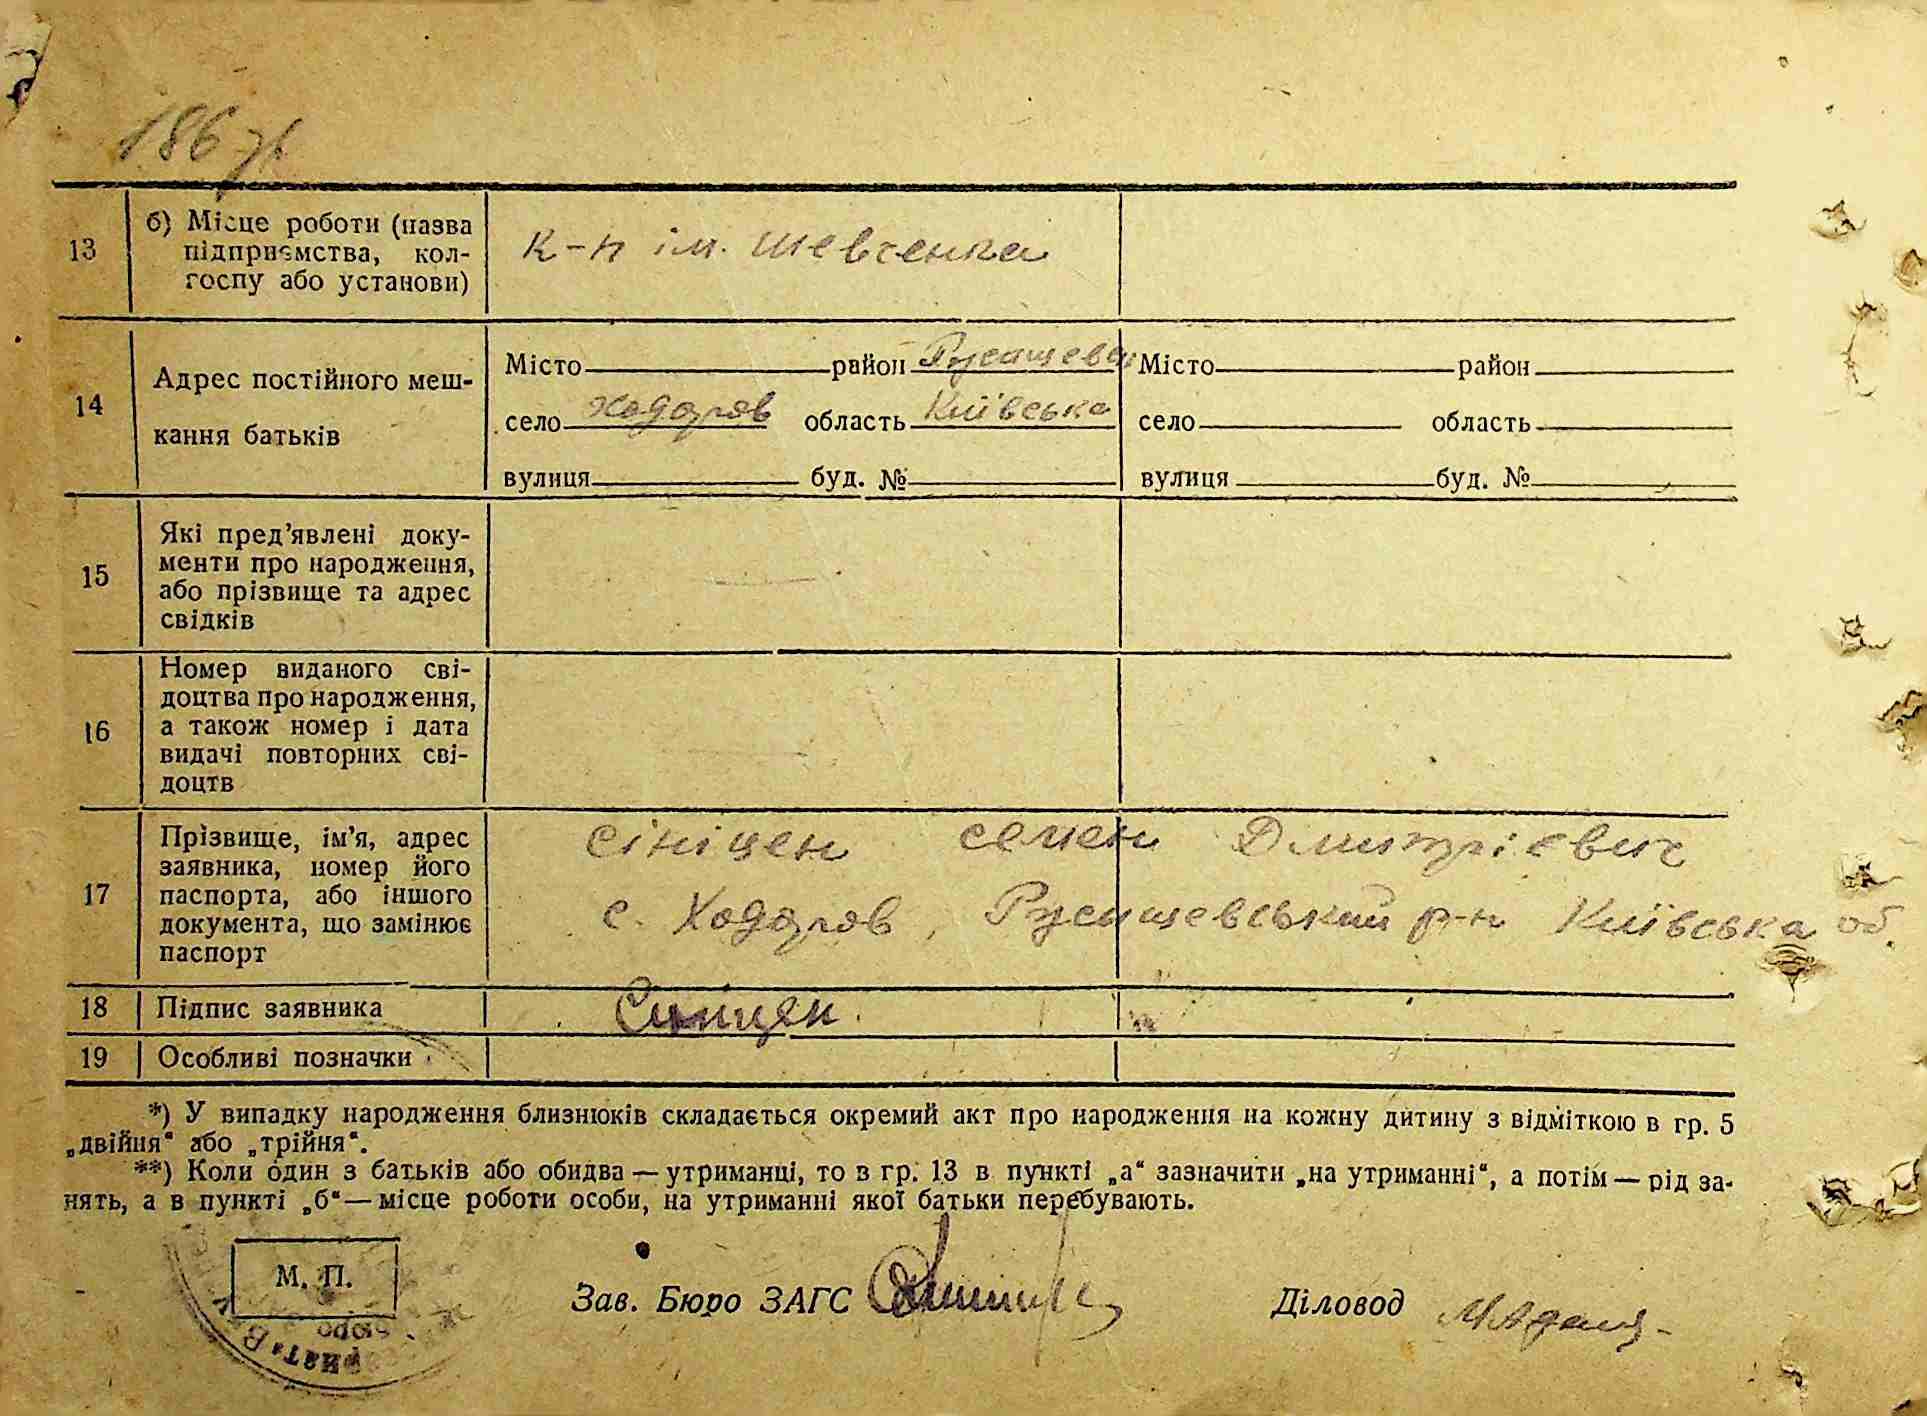 186
13
б) Місце роботи (назва
підприємства, кол-
госпу або установи)
К-п ім. Шевченка
14
Адрес постійного меш-
кання батьків
Місто район Русащевськ
село Ходоров область Київська
вулиця буд. №
Місто район
село область
вулиця буд. №
15
Які пред’явлені доку-
менти про народження,
або прізвище та адрес
свідків
16
Номер виданого сві-
доцтва про народження,
а також номер і дата
видачі повторних сві-
доцтв
17
Прізвище, ім’я, адрес
заявника, номер його
паспорта, або іншого
документа, що замінює
паспорт
Сініцен Семен Дмитрієвич
с. Ходоров, Русащевський р-н Київська об.
18
Підпис заявника
Сініцен.
19
Особливі позначки
*) У випадку народження близнюків складається окремий акт про народження на кожну дитину з відміткою в гр. 5
„двійня“ або „трійня“.
**) Коли один з батьків або обидва — утриманці, то в гр. 13 в пункті „а“ зазначити „на утриманні“, а потім — рід за-
нять, а в пункті „б“ — місце роботи особи, на утриманні якої батьки перебувають.
М. П.
Зав. Бюро ЗАГС
Діловод